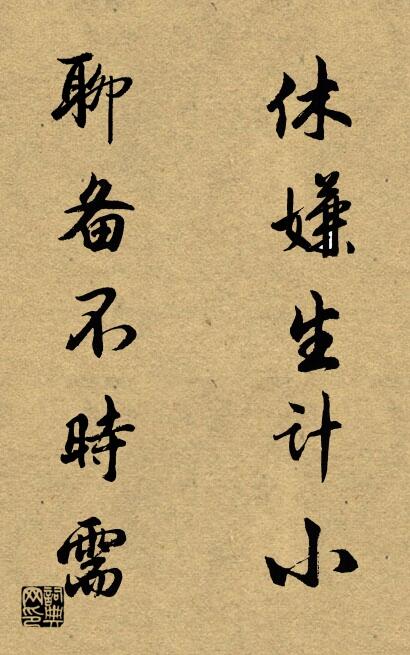 休嫌生计小
聊备不時需
詞典網印